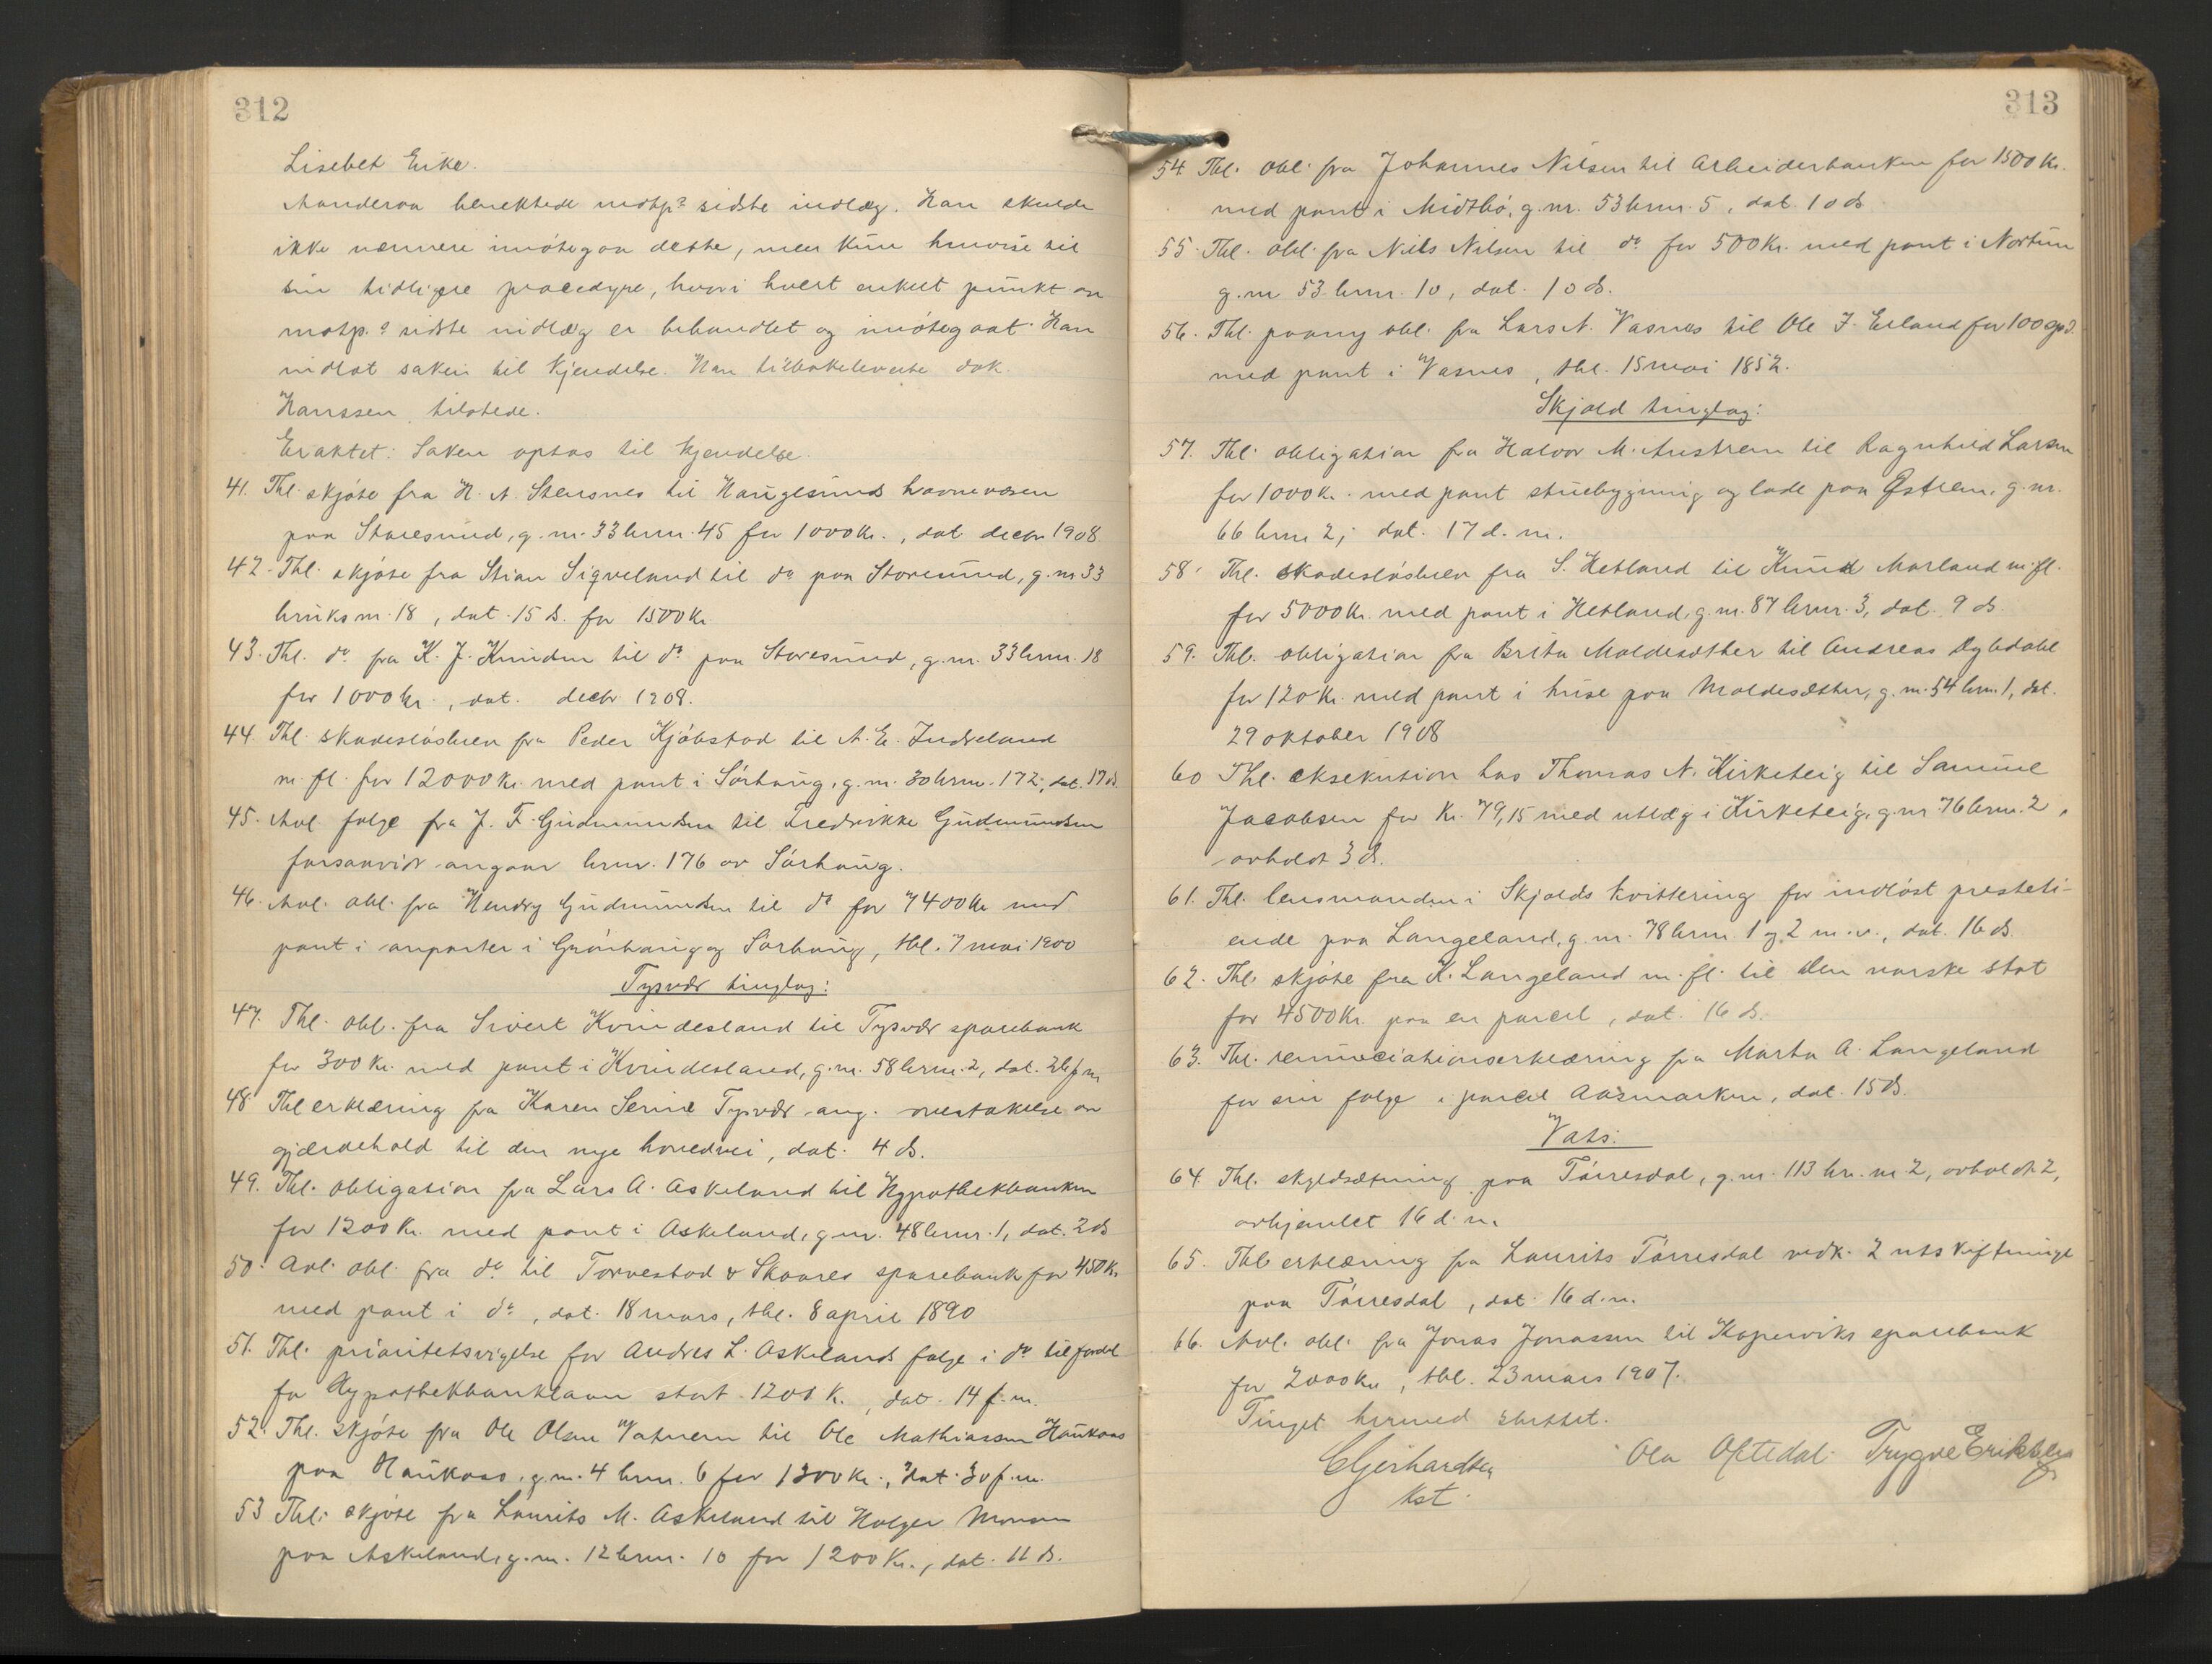 312
Lisebet Eike.
Aanderaa benektede motp.s sidste indlæg. Han skulde
ikke nærmere imøtegaa dette, men kun henvise til
sin tidligere procedyre, hvori hvert enkelt punkt av
motp.s sidste indlæg er behandlet og imøtegaat. Han
indlot saken til kjendelse. Han tilbakeleverte dok.
Hanssen tilstede.
Eraktet: Saken optas til kjendelse.
41. Thl. skjøte fra H. A. Stensnes til Haugesunds havnevæsen
paa Storesund, g.nr. 33 brnr. 45 for 1000 Kr., dat. decbr 1908
42. Thl. skjøte fra Stian Sigveland til do paa Storesund, g.nr 33
bruksnr. 18, dat. 15 ds. for 1500 Kr
43. Thl. do fra K. J. Knudsen til do paa Storesund, g.nr. 33 brnr. 18
for 1000 kr., dat. decbr 1908.
44. Thl. skadesløsbrev fra Peder Kjøbstad til A. E. Indreland
m. fl. for 12000 Kr. med pant i Sørhaug, g.nr. 30 brnr. 172, dat. 17 ds.
45. Avl. følge fra J. F. Gudmundsen til Fredrikke Gudmundsen
forsaavidt angaar brnr. 176 av Sørhaug.
46. Avl. obl. fra Hendry Gudmundsen til do for 7400 Kr med
pant i anparter i Grønhaug og Sørhaug, thl. 7 mai 1900
Tysvær tinglag:
47. Thl. obl. fra Sivert Kvindesland til Tysvær sparebank
for 300 Kr. med pant i Kvindesland, g.nr. 58 brnr. 2, dat. 26 f.m
48 Thl erklæring fra Karen Serine Tysvær ang. overtakelse av
gjærdehold til den nye hovedvei, dat. 4 ds.
49. Thl. obligation fra Lars A. Askeland til Hypothekbanken
for 1200 Kr. med pant i Askeland, g.nr. 48 brnr. 1, dat. 2 ds
50. Avl. obl. fra do til Torvestad & Skaares sparebank for 450 Kr.
med pant i do, dat. 18 mars, thl. 8 april 1890
51. Thl. prioritetsvigelse for Andres L. Askelands følge i do til fordel
for Hypothekbanklaan stort 1200 K., dat. 14 f.m.
52. Thl. skjøte fra Ole Olsen Vatnem til Ole Mathiassen Haukaas
paa Haukaas, g.nr. 4 brnr. 6 for 1300 Kr., dat. 30 f.m.
53 Thl. skjøte fra Laurits M. Askeland til Holger Monsen
paa Askeland, g.nr. 12 brnr. 10 for 1200 Kr., dat. 11 ds.
313
54 Thl. obl. fra Johannes Nilsen til Arbeiderbanken for 1500 Kr.
med pant i Midtbø, g.nr. 53 brnr. 5, dat. 10 ds
55. Thl. obl. fra Nils Nilsen til do for 500 Kr. med pant i Nortun
g.nr 53 brnr. 10, dat. 10 ds.
56. Thl. paany obl. fra Lars N. Vasnes til Ole J. Erland for 100 spd.
med pant i Vasnes, thl. 15 mai 1852.
Skjold tinglag:
57. Thl. obligation fra Halvor M. Austrem til Ragnhild Larsen
for 1000 Kr. med pant stuebygning og lade paa Østrem, g.nr.
66 brnr 2, dat. 17 d.m.
58. Thl. skadesløsbrev fra S. Hetland til Knud Marland m.fl.
for 5000 Kr. med pant i Hetland, g.nr. 87 brnr. 3, dat. 9 ds.
59. Thl. obligation fra Brita Moldesæther til Andreas Dybdahl
for 120 Kr. med pant i huse paa Moldesæther, g.nr. 54 brnr. 1, dat.
29 oktober 1908
60 Thl. eksekution hos Thomas N. Kirketeig til Samuel
Jacobsen for Kr. 79,15 med utlæg i Kirketeig, g.nr 76 brnr. 2,
avholdt 3 ds.
61. Thl. lensmanden i Skjolds kvittering for indløst presteti-
ende paa Langeland, g.nr. 78 brnr. 1 og 2 m.v., dat. 16 ds.
62. Thl. skjøte fra K. Langeland m.fl. til Den norske stat
for 4500 Kr. paa en parcel, dat. 16 ds.
63. Thl. renunciationserklæring fra Marta A. Langeland
for sin følge i parcel Aasmarken, dat. 15 ds.
Vats:
64. Thl. skyldsætning paa Tørresdal, g.nr. 113 br.nr 2, avholdt 2,
avhjemlet 16 d.m.
65. Thl erklæring fra Laurits Tørresdal vedk. 2 utskiftninge
paa Tørresdal, dat. 16 d.m.
66. Avl. obl. fra Jonas Jonassen til Kopervik sparebank
for 2000 Kr, thl. 23 mars 1907.
Tinget hermed sluttet.
C Gjerhardsen Ola Oftedal. Trygve Eriksen
kst.